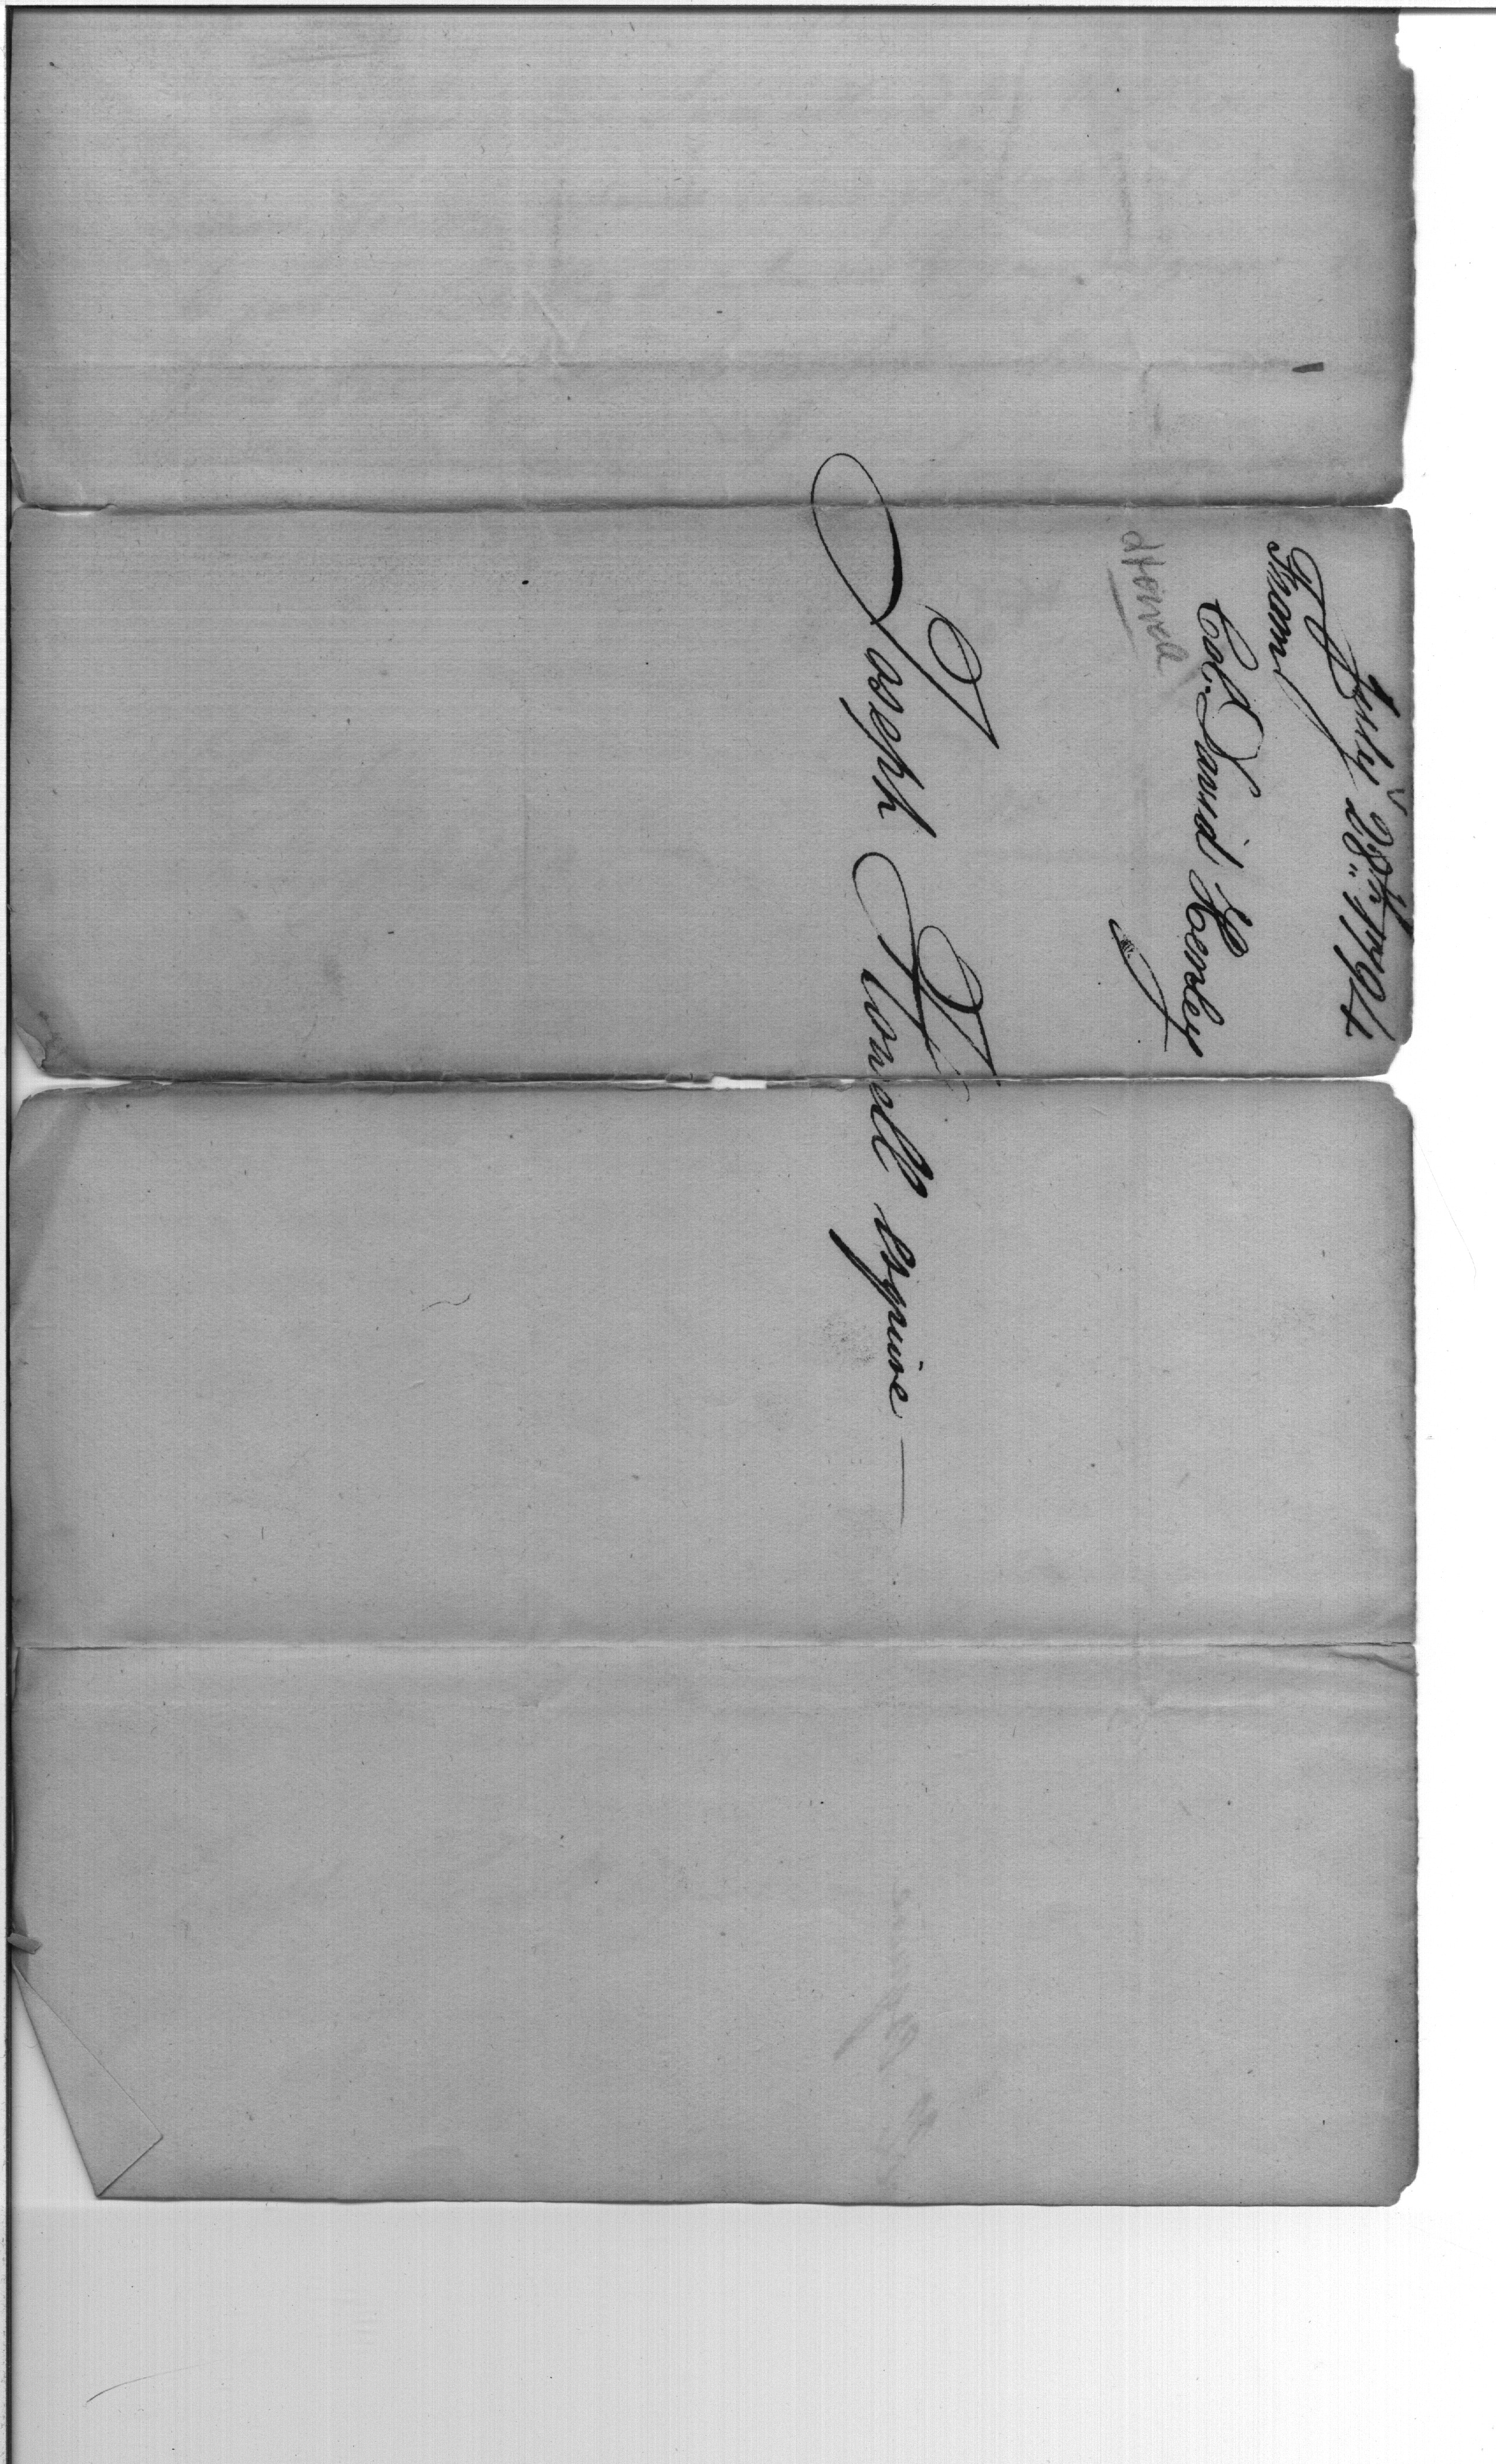 July 28th 1794
From
Col. David Henley
J Howell
Joseph Howell esquire